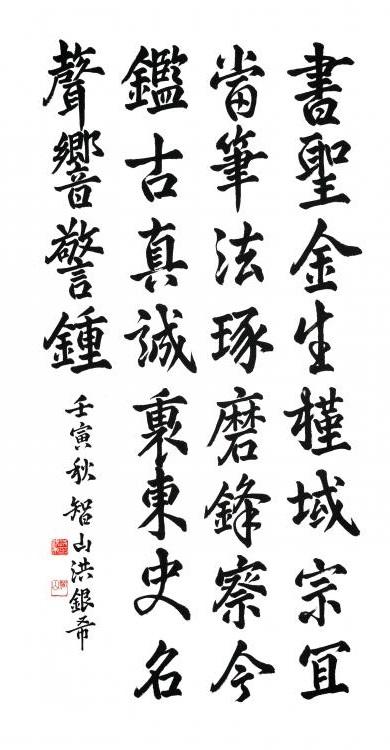 書聖金生槿域宗冝
當筆法琢磨鋒察今
鑑古真誠裏東史名
聲響警鍾
壬寅秋 智山 洪銀希